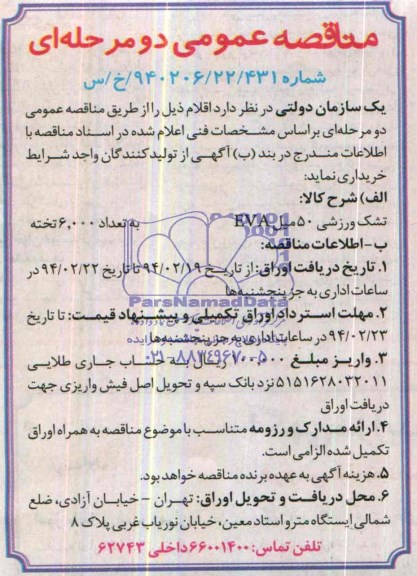 مناقصه عمومی دو مرحله‌ای
شماره ۹۴۰۲۰۶/۲۲/۴۳۱/خ/س
یک سازمان دولتی در نظر دارد اقلام ذیل را از طریق مناقصه عمومی
دو مرحله‌ای براساس مشخصات فنی اعلام شده در اسناد مناقصه با
اطلاعات مندرج در بند (ب) آگهی از تولیدکنندگان واجد شرایط
خریداری نماید:
الف) شرح کالا:
تشک ورزشی ۵۰ میل EVA به تعداد ۶,۰۰۰ تخته
ب-اطلاعات مناقصه:
۱. تاریخ دریافت اوراق: از تاریخ ۹۴/۰۲/۱۹ تا تاریخ ۹۴/۰۲/۲۲ در
ساعات اداری به جز پنجشنبه‌ها
ParsNamadData
۲. مهلت استرداد اوراق تکمیلی و پیشنهاد قیمت: تا تاریخ
۹۴/۰۲/۲۳ در ساعات اداری به جز پنجشنبه‌ها
۰۲۱-۸۸۳۴۹۶۷۰-۵
۳. واریز مبلغ ریال به حساب جاری طلایی
۵۱۵۱۶۲۸۰۳۲۰۱۱ نزد بانک سپه و تحویل اصل فیش واریزی جهت
دریافت اوراق
۴. ارائه مدارک و رزومه متناسب با موضوع مناقصه به همراه اوراق
تکمیل شده الزامی است.
۵. هزینه آگهی به عهده برنده مناقصه خواهد بود.
۶. محل دریافت و تحویل اوراق: تهران - خیابان آزادی، ضلع
شمالی ایستگاه مترو استاد معین، خیابان نوریاب غربی پلاک ۸
تلفن تماس: ۶۶۰۰۱۴۰۰ داخلی ۶۲۷۴۳